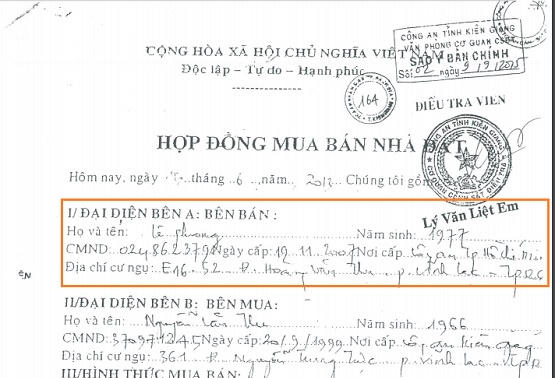 CỘNG HÒA XÃ HỘI CHỦ NGHĨA VIỆT NAM
Độc lập – Tự do – Hạnh phúc
CÔNG AN TỈNH KIÊN GIANG
VĂN PHÒNG CƠ QUAN CSĐT
SAO Y BẢN CHÍNH
Số: 02 ngày 9/9/2015
164
ĐIỀU TRA VIÊN
HỢP ĐỒNG MUA BÁN NHÀ ĐẤT
Hôm nay, ngày tháng 6 năm Chúng tôi gồm
CÔNG AN TỈNH KIÊN GIANG
CƠ QUAN CẢNH SÁT ĐIỀU TRA
Lý Văn Liệt Em
I/ ĐẠI DIỆN BÊN A: BÊN BÁN:
Họ và tên: Lê Phong Năm sinh: 1977
CMND: 024862379 Ngày cấp: 19.11.2007 Nơi cấp Công an Tp Hồ Chí Minh
Địa chỉ cư ngụ: E16.52 Đ. Hoàng Văn Thụ p. Vĩnh Lạc – TPRG
II/ ĐẠI DIỆN BÊN B: BÊN MUA:
Họ và tên: Nguyễn Thu Năm sinh: 1966
CMND: 370971245 Ngày cấp: 20/9/1999 Nơi cấp Công an Kiên Giang
Địa chỉ cư ngụ: 361 Đ. Nguyễn Trung Trực p. Vĩnh Lạc – TPR
III/ HÌNH THỨC MUA BÁN: